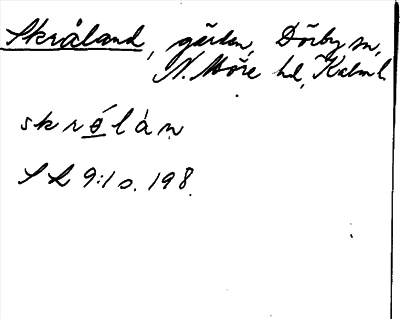 Skråland, gården, Dörby sn,
N. Möre hd, Kalm. l.
skrólàn
S L 9:1 s. 198.